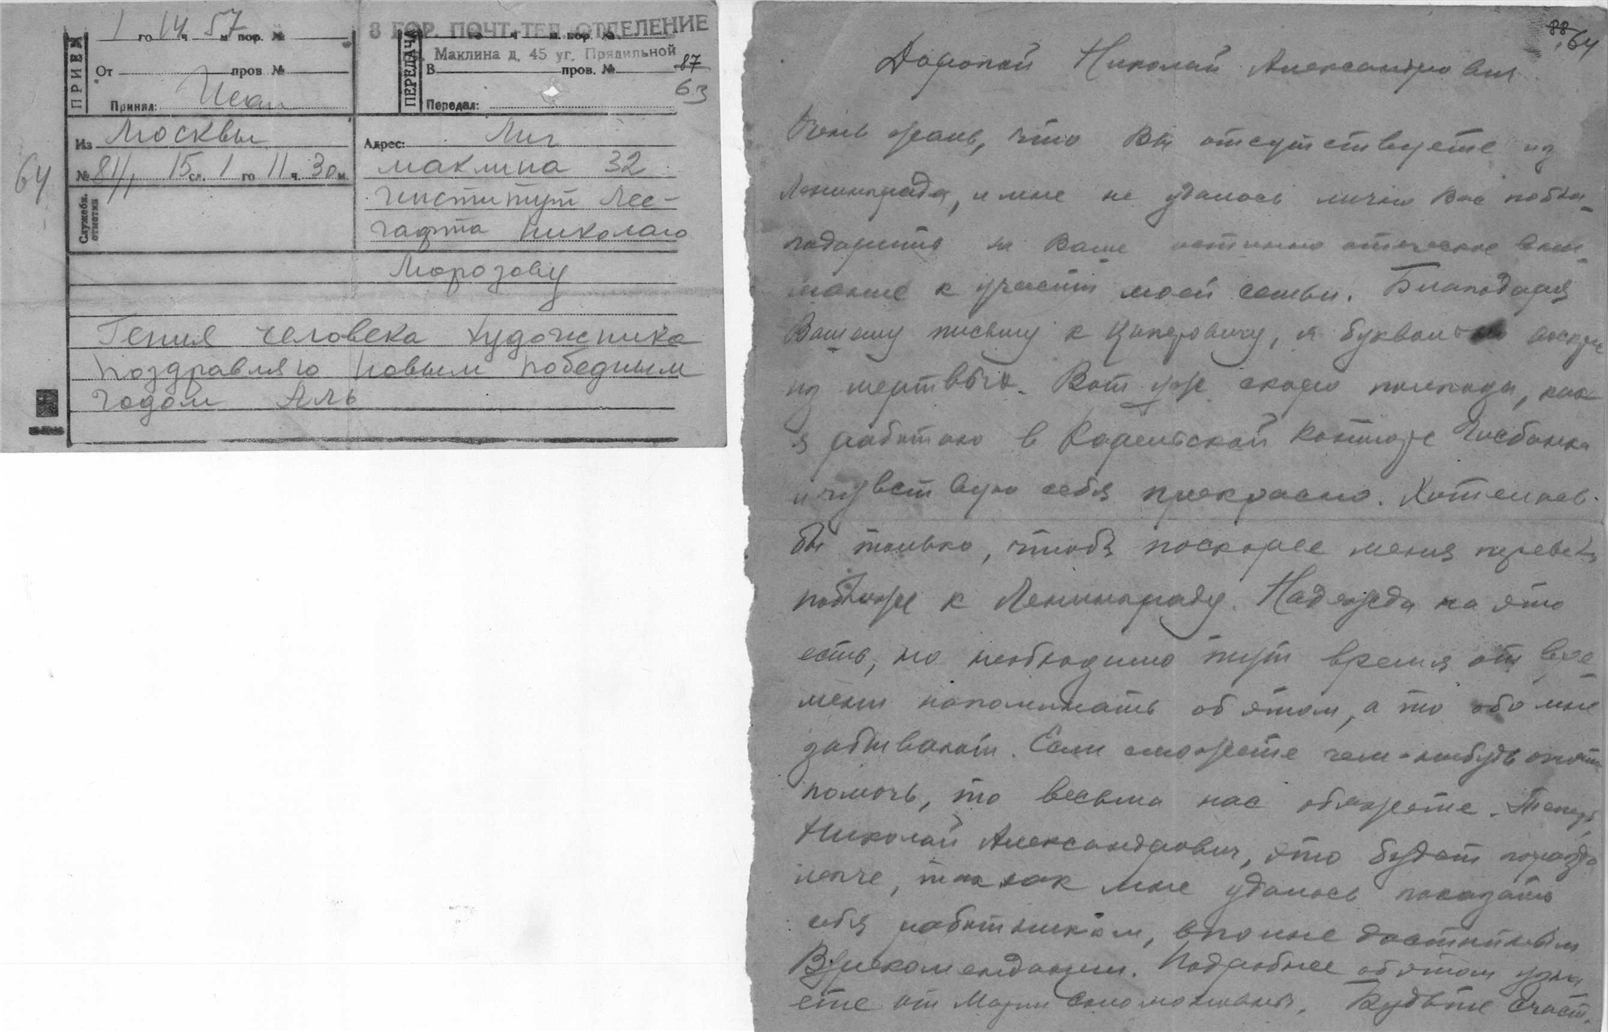 ПРИЕМ
1 го 14 ч 57 м пор. №
От пров. №
Принял:
8 ГОР. ПОЧТ-ТЕЛ. ОТДЕЛЕНИЕ
Маклина д. 45 уг. Прядильной
ПЕРЕДАЧА
В пров. №
Передал:
87
63
64
Из Москвы
№ 81/1 15 сл. 1 го 11 ч. 30 м.
Служебн. отметки
Адрес: Лнг
маклина 32
институт Лес-
гафта николаю
Морозову
Гения человека художника
поздравляю новым победным
годом Аль
88
64
Дорогой Николай Александрович
Очень жаль, что Вы отсутствуете из
Ленинграда, и мне не удалось лично Вас побла-
годарить за Ваше истинно отеческое вни-
мание к участи моей семьи. Благодаря
Вашему письму к я буквально воскрес
из мертвых. Вот уже скоро полгода, как
я работаю в Карельской конторе Госбанка
и чувствую себя прекрасно. Хотелось
бы только, чтобы поскорее меня перевели
поближе к Ленинграду. Надежда на это
есть, но необходимо тут время от вре
мени напоминать об этом, а то обо мне
забывают. Если сможете чем-нибудь опять
помочь, то весьма нас обяжете. Теперь,
Николай Александрович, это будет гораздо
легче, так как мне удалось показать
себя работником, вполне достойным
В/рекомендации. Подробнее об этом узна
ете от Марии Соломоновны. Будьте счаст.